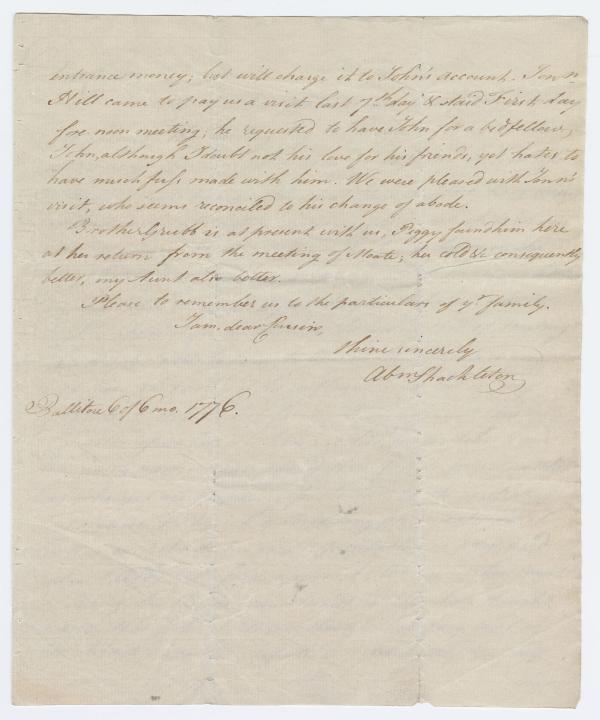 entrance money; but will charge it to John's account. Jonn
Hill came to pay us a visit last 7th day & staid First day
fore noon meeting; he requested to have John for a bedfellow,
John, although I doubt not his love for his friends, yet hates to
have much fuss made with him. We were pleased with Jonn's
visit, who seems reconciled to his change of abode.
Brother Grubb is at present with us, Peggy found him here
at her return from the meeting of Moate; her cold &c consequently
better, my Aunt also better.
Please to remember us to the particulars of yr family.
I am, dear Cousin,
thine sincerely
Abm Shackleton
Ballitore 6 of 6 mo. 1776.